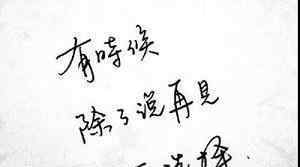 有時候
除了说再見